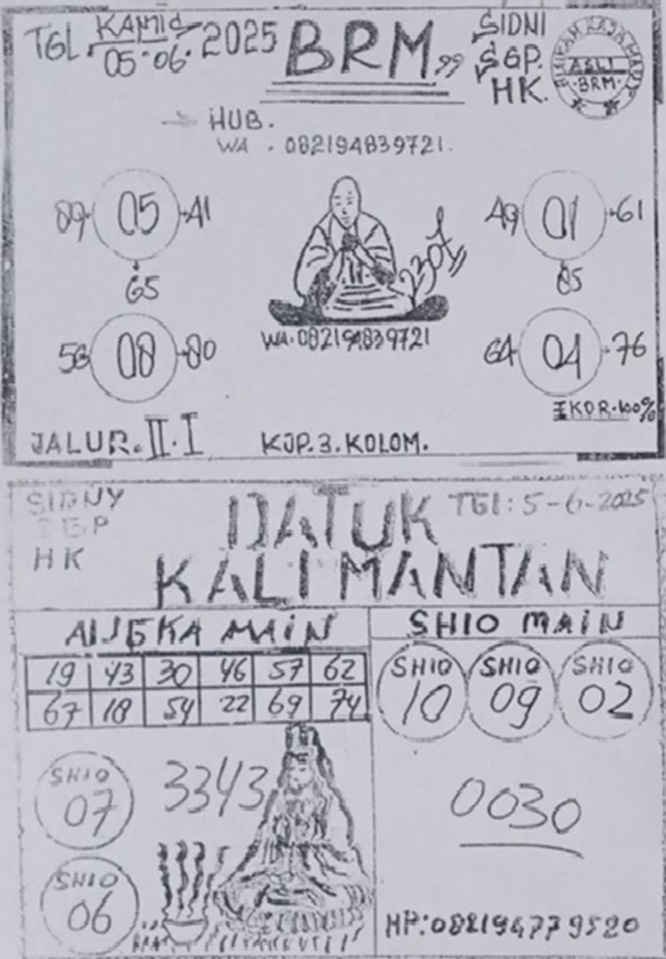 TGL KAMIS 05-06-2025
BRM 99
SIDNI
SGP.
HK.
ASLI
BRM
HUB.
WA . 082194839721.
89 05 41
65
49 01 61
85
WA. 082194839721
56 08 80
64 04 76
KDR.100%
JALUR. II. I
KJP. 3. KOLOM.
SIDNY
SGP
HK
DATUK
KALIMANTAN
TGl: 5-6-2025
ANGKA MAIN
19 43 30 46 57 62
67 18 54 22 69 74
SHIO MAIN
SHIO 10
SHIO 09
SHIO 02
SHIO 07
3343
SHIO 06
0030
HP: 082194779520